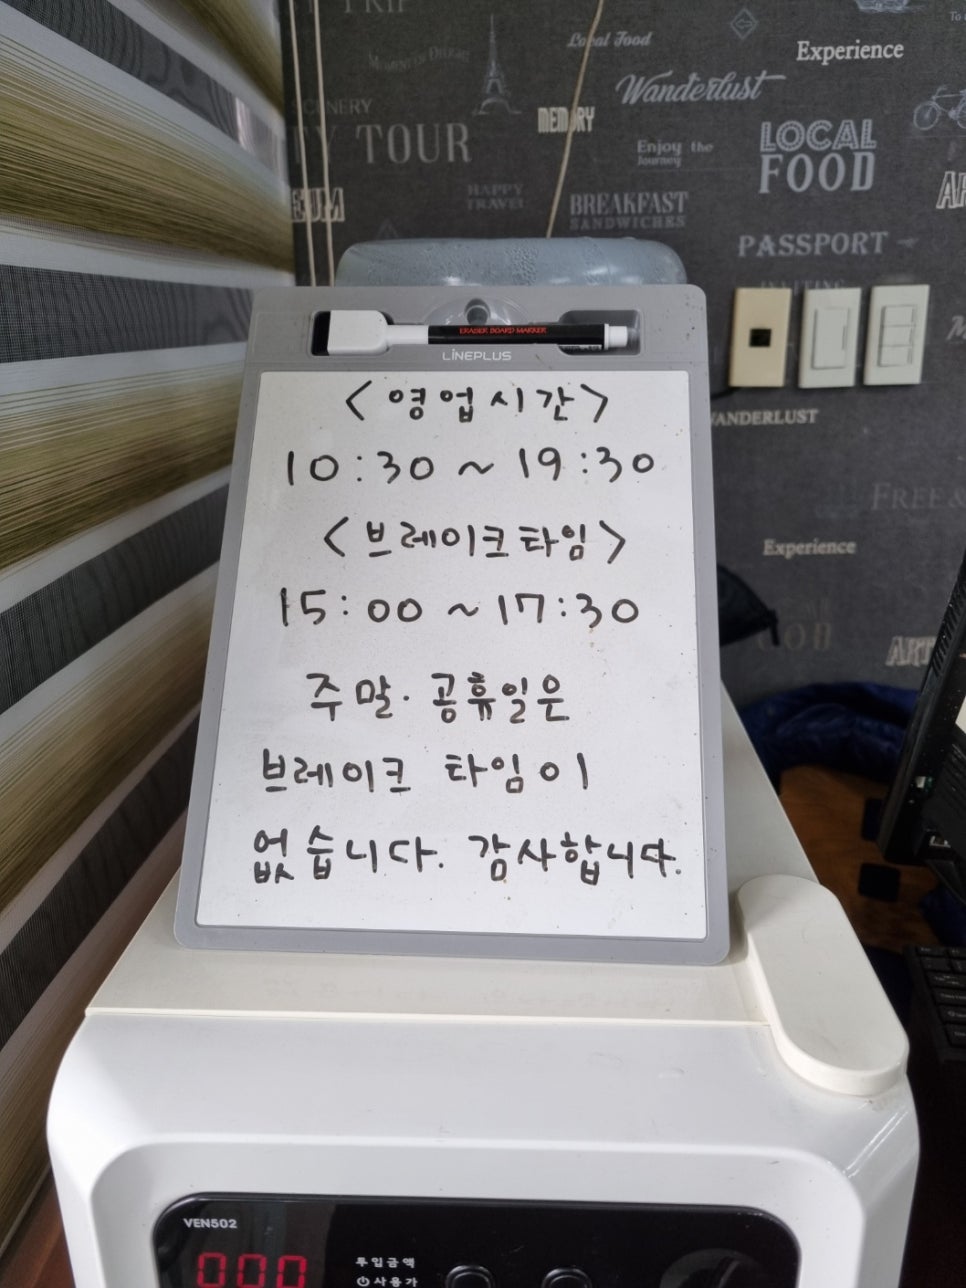 TRIP
Local Food
Experience
SCENERY
Wanderlust
MEMORY
TY TOUR
Enjoy the
Journey
LOCAL
FOOD
HAPPY
TRAVEL
BREAKFAST
SANDWICHES
PASSPORT
ERASER BOARD MARKER
LINEPLUS
<영업시간>
10:30 ~ 19:30
<브레이크타임>
15:00 ~ 17:30
주말·공휴일은
브레이크 타임이
없습니다. 감사합니다.
WANDERLUST
FREE &
Experience
ART
VEN502
000
투입금액
사용가